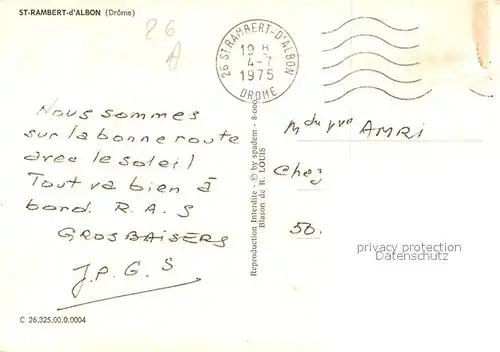 ST-RAMBERT-d'ALBON (Drôme)
26
A
26 ST.RAMBERT-D'ALBON
19 H
4-7
1975
DROME
Nous sommes
sur la bonne route
avec le soleil
Tout va bien à
bord. R.A.S
GROS BAISERS
J.P.G.S
Reproduction Interdite - © by spadem - 8-000
Blason de R. LOUIS
AMRI
Chez
50.
privacy protection
Datenschutz
C 26.325.00.0.0004